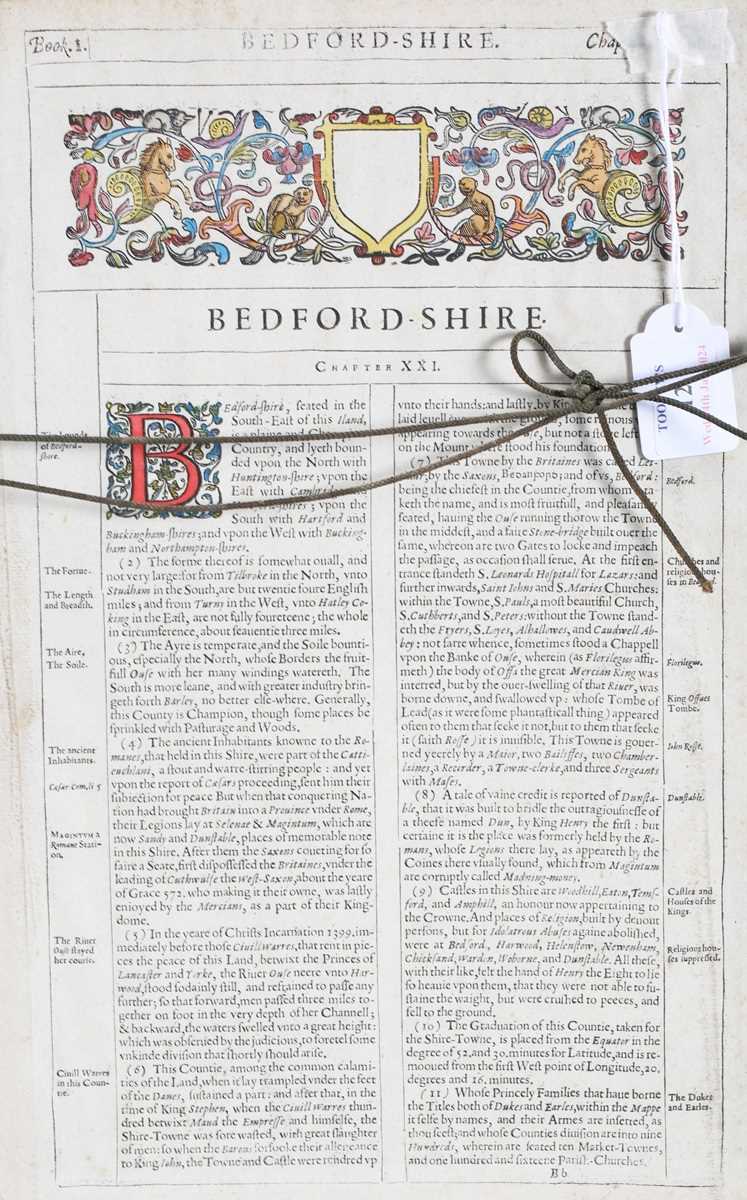 Book. I.
BEDFORD-SHIRE.
Chap
BEDFORD-SHIRE.
CHAPTER XXI.
BEdford-shire, seated in the
South-East of this Iland,
is a plaine and
Country, and lyeth boun-
ded vpon the North with
Huntington-shire; vpon the
East with
; vpon the
South with Hartford and
Buckingham-shires; and vpon the West with Bucking-
ham and Northampton-shires.
(2) The forme thereof is somewhat ouall, and
not very large: for from Tilbroke in the North, vnto
Studham in the South, are but twentie foure English
miles; and from Turny in the West, vnto Hatley Co-
king in the East, are not fully foureteene; the whole
in circumference, about seauentie three miles.
(3) The Ayre is temperate, and the Soile bounti-
ous, especially the North, whose Borders the fruit-
full Ouse with her many windings watereth. The
South is more leane, and with greater industry brin-
geth forth Barley, no better else-where. Generally,
this County is Champion, though some places be
sprinkled with Pasturage and Woods.
(4) The ancient Inhabitants knowne to the Ro-
manes, that held in this Shire, were part of the Catti-
euchlani, a stout and warre-stirring people: and yet
vpon the report of Cæsars proceeding, sent him their
subiection for peace But when that conquering Na-
tion had brought Britain into a Prouince vnder Rome,
their Legions lay at Selenae & Magintum, which are
now Sandy and Dunstable, places of memorable note
in this Shire. After them the Saxons coueting for so
faire a Seate, first dispossessed the Britaines, vnder the
leading of Cuthwulfe the West-Saxon, about the yeare
of Grace 572. who making it their owne, was lastly
enioyed by the Mercians, as a part of their King-
dome.
(5) In the yeare of Christs Incarnation 1399. im-
mediately before those Ciuill Warres, that rent in pie-
ces the peace of this Land, betwixt the Princes of
Lancaster and Yorke, the Riuer Ouse neere vnto Har-
wood, stood sodainly still, and refrained to passe any
further; so that forward, men passed three miles to-
gether on foot in the very depth of her Channell;
& backward, the waters swelled vnto a great height:
which was obserued by the iudicious, to foretel some
vnkinde diuision that shortly should arise.
(6) This Countie, among the common calami-
ties of the Land, when it lay trampled vnder the feet
of the Danes, sustained a part: and after that, in the
time of King Stephen, when the Ciuill Warres thun-
dred betwixt Maud the Empresse and himselfe, the
Shire-Towne was sore wasted, with great slaughter
of men: so when the Barons forsooke their allegeance
to King Iohn, the Towne and Castle were rendred vp
of Bedford-
shire.
The Forme.
The Length
and Breadth.
The Aire.
The Soile.
The ancient
Inhabitants.
Cæsar Com. li 5
MAGINTVM a
Romane Stati-
on.
The Riuer
Ouse stayed
her course.
Ciuill Warres
in this Coun-
tie.
vnto their hands: and lastly, by King
laid leuell
appearing towards the , but not a stone left
on the Mount where stood his foundation.
(7) This Towne by the Britaines was called Let-
tidur, by the Saxons, Bedanford; and of vs, Bedford:
being the chiefest in the Countie, from whom it ta-
keth the name, and is most fruitfull, and pleasantly
seated, hauing the Ouse running thorow the Towne
in the middest, and a faire Stone-bridge built ouer the
same, whereon are two Gates to locke and impeach
the passage, as occasion shall serue. At the first en-
trance standeth S. Leonards Hospitall for Lazars: and
further inwards, Saint Iohns and S. Maries Churches:
within the Towne, S. Pauls, a most beautiful Church,
S. Cuthberts, and S. Peters: without the Towne stand-
eth the Fryers, S. Loyes, Alhallowes, and Caudwell Ab-
bey: not farre whence, sometimes stood a Chappell
vpon the Banke of Ouse, wherein (as Florilegus affir-
meth) the body of Offa the great Mercian King was
interred, but by the ouer-swelling of that Riuer, was
borne downe, and swallowed vp: whose Tombe of
Lead (as it were some phantasticall thing) appeared
often to them that seeke it not, but to them that seeke
it (saith Rosse) it is inuisible. This Towne is gouer-
ned yeerely by a Maior, two Bailiffes, two Chamber-
laines, a Recorder, a Towne-clerke, and three Sergeants
with Mases.
(8) A tale of vaine credit is reported of Dunsta-
ble, that it was built to bridle the outragiousnesse of
a theefe named Dun, by King Henry the first: but
certaine it is the place was formerly held by the Ro-
mans, whose Legions there lay, as appeareth by the
Coines there vsually found, which from Magintum
are corruptly called Madning-money.
(9) Castles in this Shire are Woodhill, Eaton, Tems-
ford, and Ampthill, an honour now appertaining to
the Crowne. And places of Religion, built by deuout
persons, but for Idolatrous Abuses againe abolished,
were at Bedford, Harwood, Helenstow, Newenham,
Chicksand, Wardon, Woborne, and Dunstable. All these,
with their like, felt the hand of Henry the Eight to lie
so heauie vpon them, that they were not able to su-
staine the waight, but were crushed to peeces, and
fell to the ground.
(10) The Graduation of this Countie, taken for
the Shire-Towne, is placed from the Equator in the
degree of 52. and 30. minutes for Latitude, and is re-
mooued from the first West point of Longitude, 20.
degrees and 16. minutes.
(11) Whose Princely Families that haue borne
the Titles both of Dukes and Earles, within the Mappe
it selfe by names, and their Armes are inserted, as
thou seest; and whose Counties diuision are into nine
Hundreds, wherein are seated ten Market-Townes,
and one hundred and sixteene Parish-Churches.
B b
Bedford.
Churches and
religious hou-
ses in Bedford.
Florilegus.
King Offaes
Tombe.
Iohn Rosse.
Dunstable.
Castles and
Houses of the
Kings.
Religious hou-
ses suppressed.
The Dukes
and Earles.